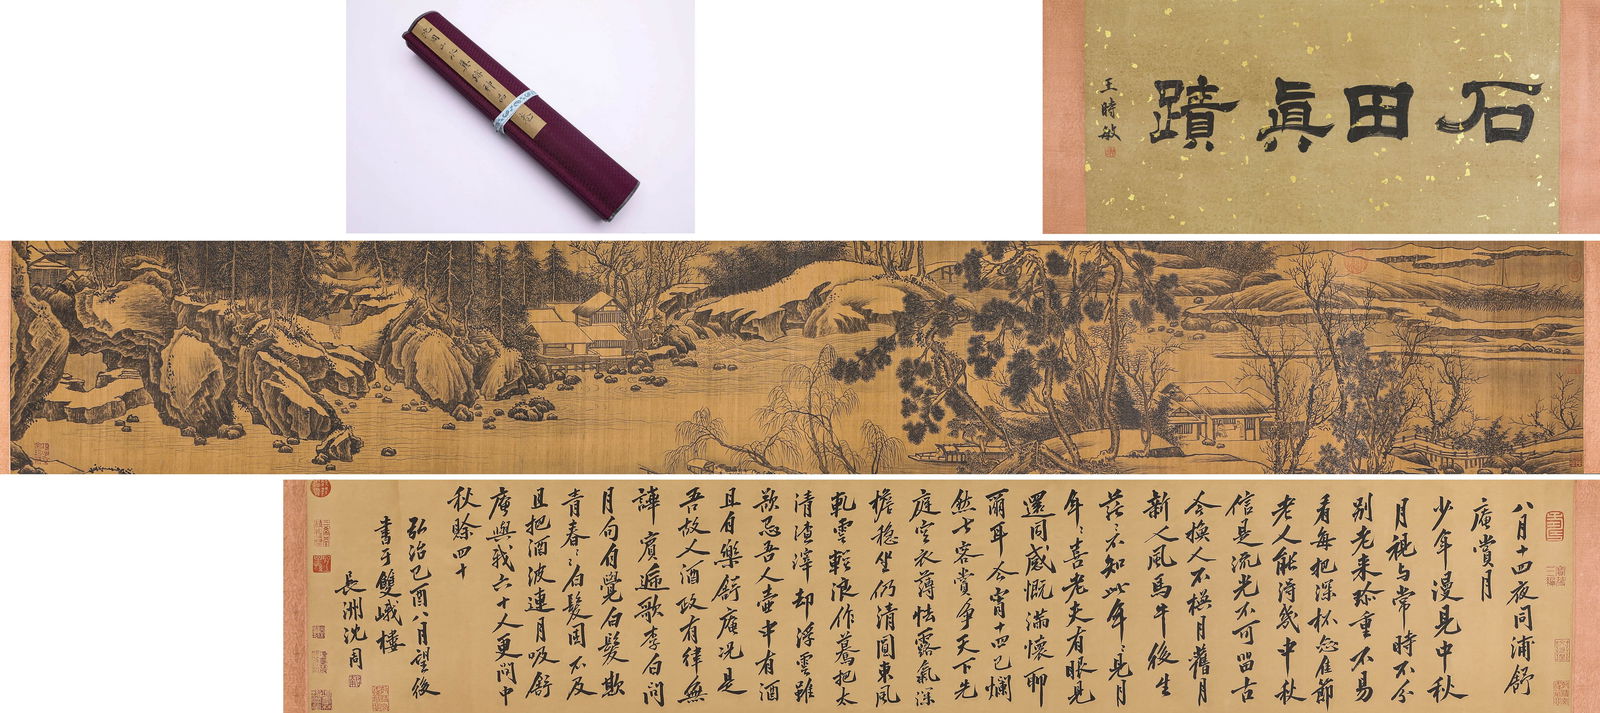 神品
石田眞蹟
王時敏
八月十四夜同浦舒
庵賞月
少年漫見中秋
月視与常時不分
別老来珍重不易
看每把深杯怨佳節
老人能得幾中秋
信是流光不可留古
今換人不換月舊月
新人風馬牛後生
茫々不知此年々見月
年々喜老夫有眼見
還同感慨滿懷聊
爾耳今宵十四已爛
然七客賞争天下先
庭空衣薄怯露氣深
檐穩坐仍清圓東風
軋雲輕浪作驀把太
清渣滓却浮雲雖
欲忌吾人壺中有酒
且自樂舒庵况是
吾故人酒政有律無
譁賓遞歌李白問
月句自覺白髮欺
青春々白髮固不及
且把酒波連月吸舒
庵與我六十人更問中
秋賒四十
弘治己酉八月望後
書于雙峨樓
長洲沈周